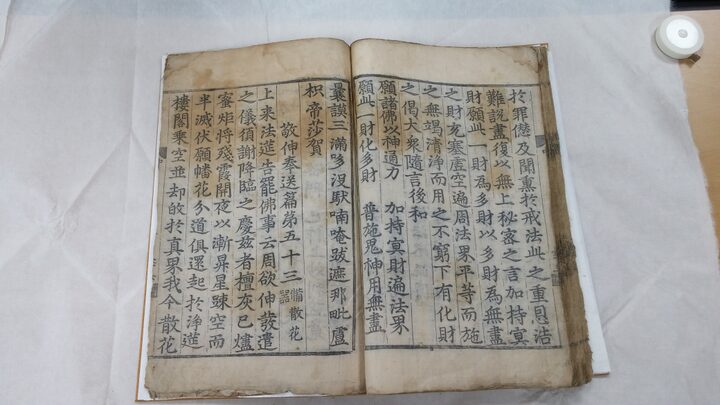 於罪愆及聞熏於戒法此之重員浩
難說盡復以無上秘密之言加持冥
財願此一財為多財以多財為無盡
之財充塞虛空遍周法界平等而施
之無竭清淨而用之不窮下有化財
之偈大衆隨言後和
願諸佛以神通力 加持冥財遍法界
願此一財化多財 普施鬼神用無盡
曩謨三滿哆沒馱喃唵跋遮那毗盧
枳帝莎賀
敬伸奉送篇第五十三 備散花器
上來法筵告罷佛事云周欲伸發遣
之儀須謝降臨之慶玆者檀灰已燼
蜜炬將殘霞開夜以漸昇星疎空而
半滅伏願幡花分道俱還起於淨筵
樓閣乘空並却皈於真界我今散花